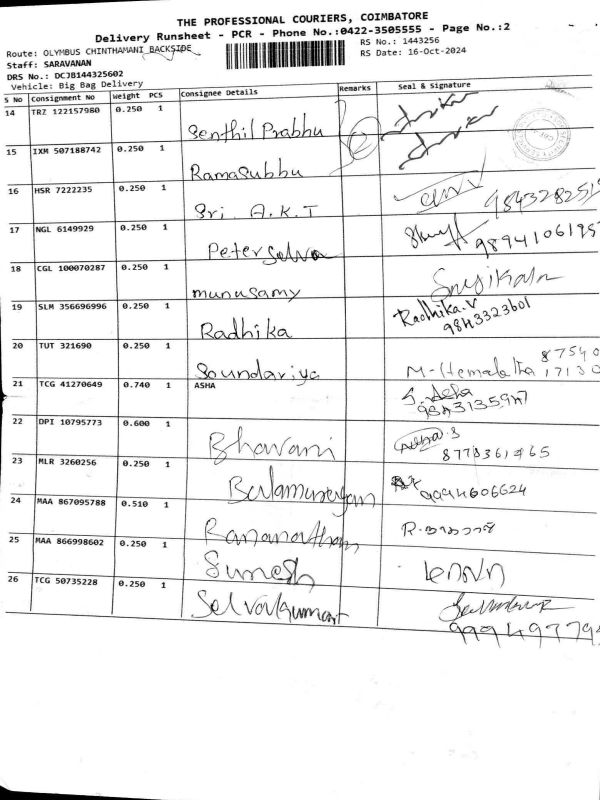 THE PROFESSIONAL COURIERS, COIMBATORE
Delivery Runsheet - PCR - Phone No.:0422-3505555 - Page No.:2
Route: OLYMBUS CHINTHAMANI BACKSIDE
RS No.: 1443256
Staff: SARAVANAN
RS Date: 16-Oct-2024
DRS No.: DCJB144325602
Vehicle: Big Bag Delivery
S No Consignment No Weight PCS Consignee Details Remarks Seal & Signature
14 TRZ 122157980 0.250 1 Senthil Prabhu
15 IXM 507188742 0.250 1 Ramasubbu
16 HSR 7222235 0.250 1 Sri. A.K.T
17 NGL 6149929 0.250 1 Peter Selva
18 CGL 100070287 0.250 1 munusamy
19 SLM 356696996 0.250 1 Radhika Radhika.V 9843323601
20 TUT 321690 0.250 1 Soundariya M-Hemalatha 87540 17130
21 TCG 41270649 0.740 1 ASHA S. Asha
22 DPI 10795773 0.600 1 Bhavani
23 MLR 3260256 0.250 1 Balamurugan 9994606624
24 MAA 867095788 0.510 1
25 MAA 866998602 0.250 1 Suresh
26 TCG 50735228 0.250 1 Selvakumar